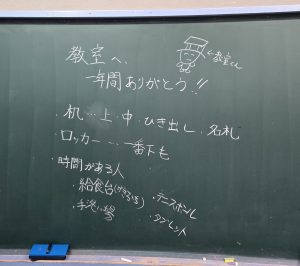 教室へ、
一年間ありがとう!!
←教室くん
・机…上・中・ひき出し・名札
・ロッカー… 一番下も
・時間がある人
・給食台
・テニスボール
・手洗い場
・タブレット